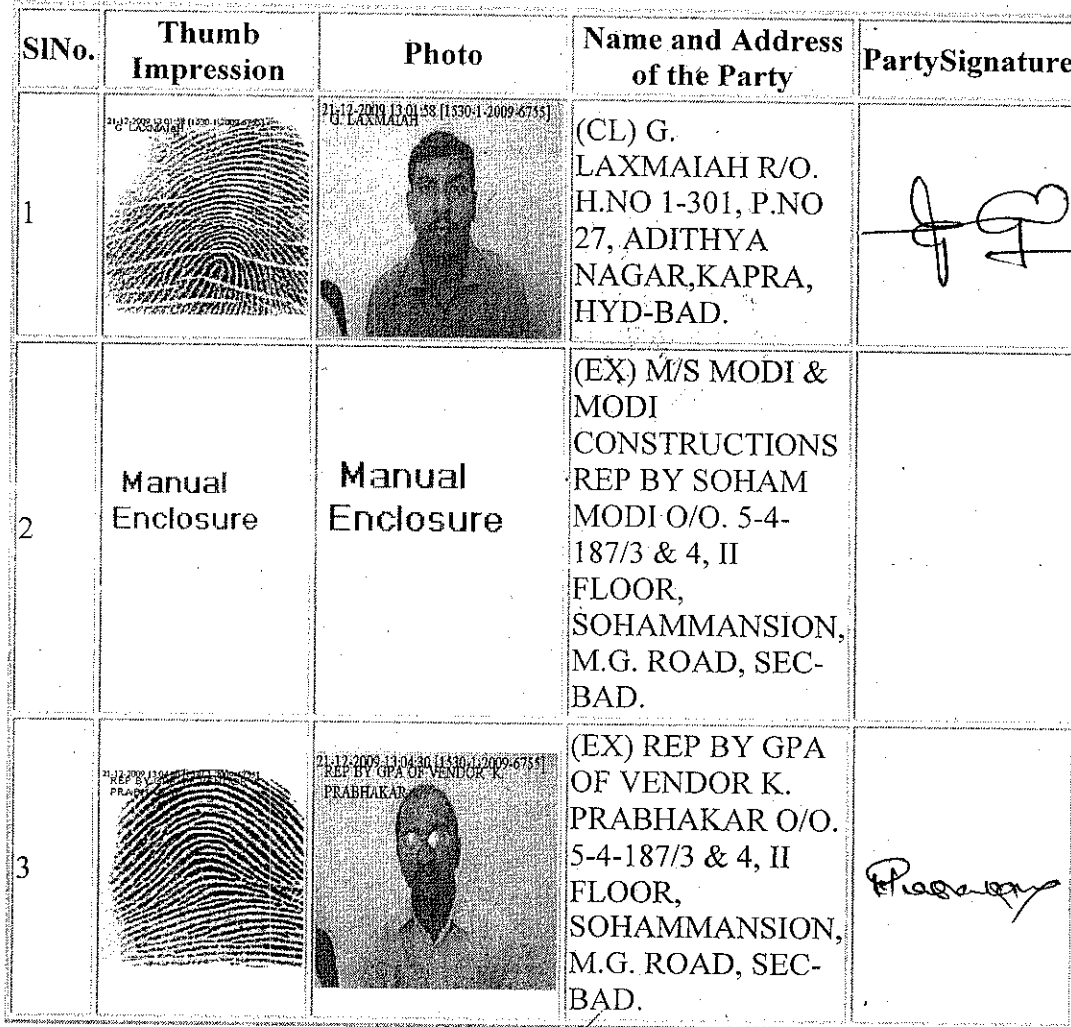 SlNo.
Thumb
Impression
Photo
Name and Address
of the Party
PartySignature
1
G. LAXMAIAH
21-12-2009 13:01:58 [1530-1-2009-6755]
G. LAXMAIAH
(CL) G.
LAXMAIAH R/O.
H.NO 1-301, P.NO
27, ADITHYA
NAGAR,KAPRA,
HYD-BAD.
2
Manual
Enclosure
Manual
Enclosure
(EX) M/S MODI &
MODI
CONSTRUCTIONS
REP BY SOHAM
MODI O/O. 5-4-
187/3 & 4, II
FLOOR,
SOHAMMANSION,
M.G. ROAD, SEC-
BAD.
3
21-12-2009 13:04:30 [1530-1-2009-6755]
REP BY GPA OF VENDOR K.
PRABHAKAR
(EX) REP BY GPA
OF VENDOR K.
PRABHAKAR O/O.
5-4-187/3 & 4, II
FLOOR,
SOHAMMANSION,
M.G. ROAD, SEC-
BAD.